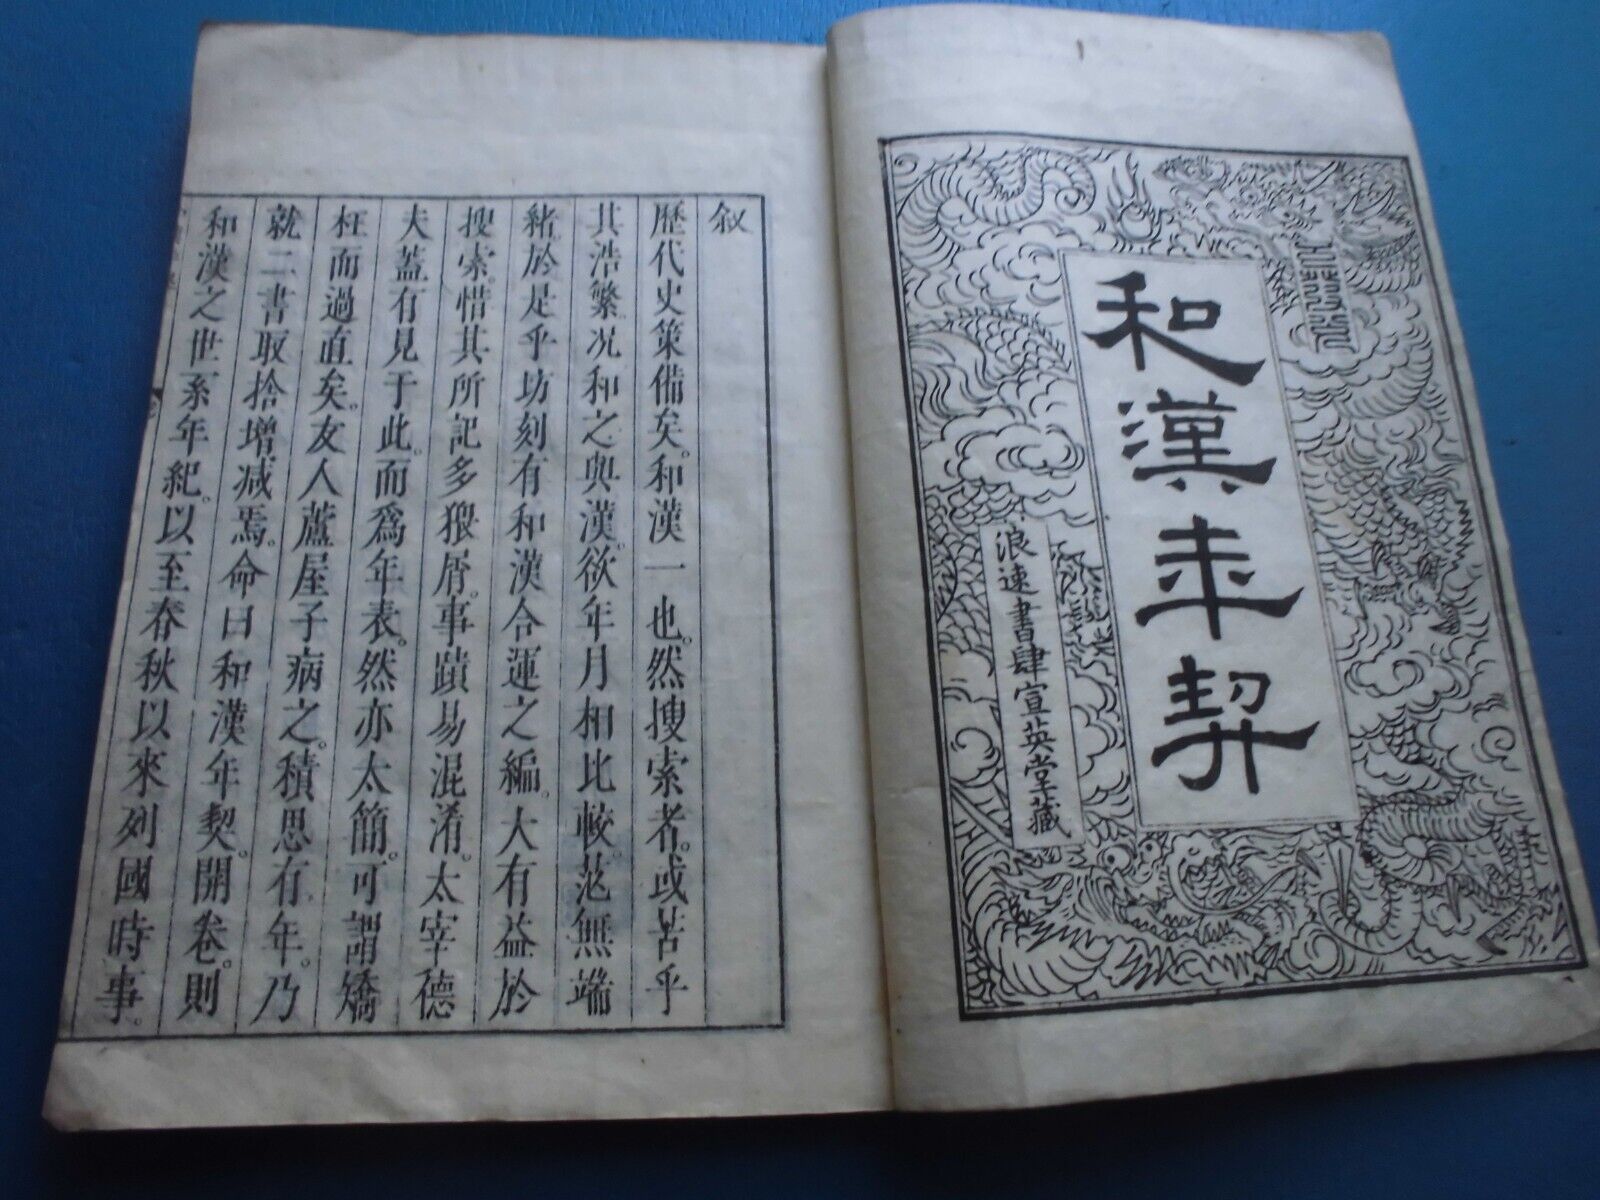 和漢年契
浪速書肆宣英堂藏
叙
歷代史策備矣。和漢一也。然搜索者。或苦乎
其浩繁。況和之與漢。欲年月相比較。茫無端
緒。於是乎坊刻有和漢合運之編。大有益於
搜索。惜其所記多猥屑。事蹟易混淆。太宰德
夫蓋有見于此。而爲年表。然亦太簡。可謂矯
枉而過直矣。友人蘆屋子病之。積思有年。乃
就二書取捨增減焉。命曰和漢年契。開卷。則
和漢之世系年紀。以至春秋以來列國時事。